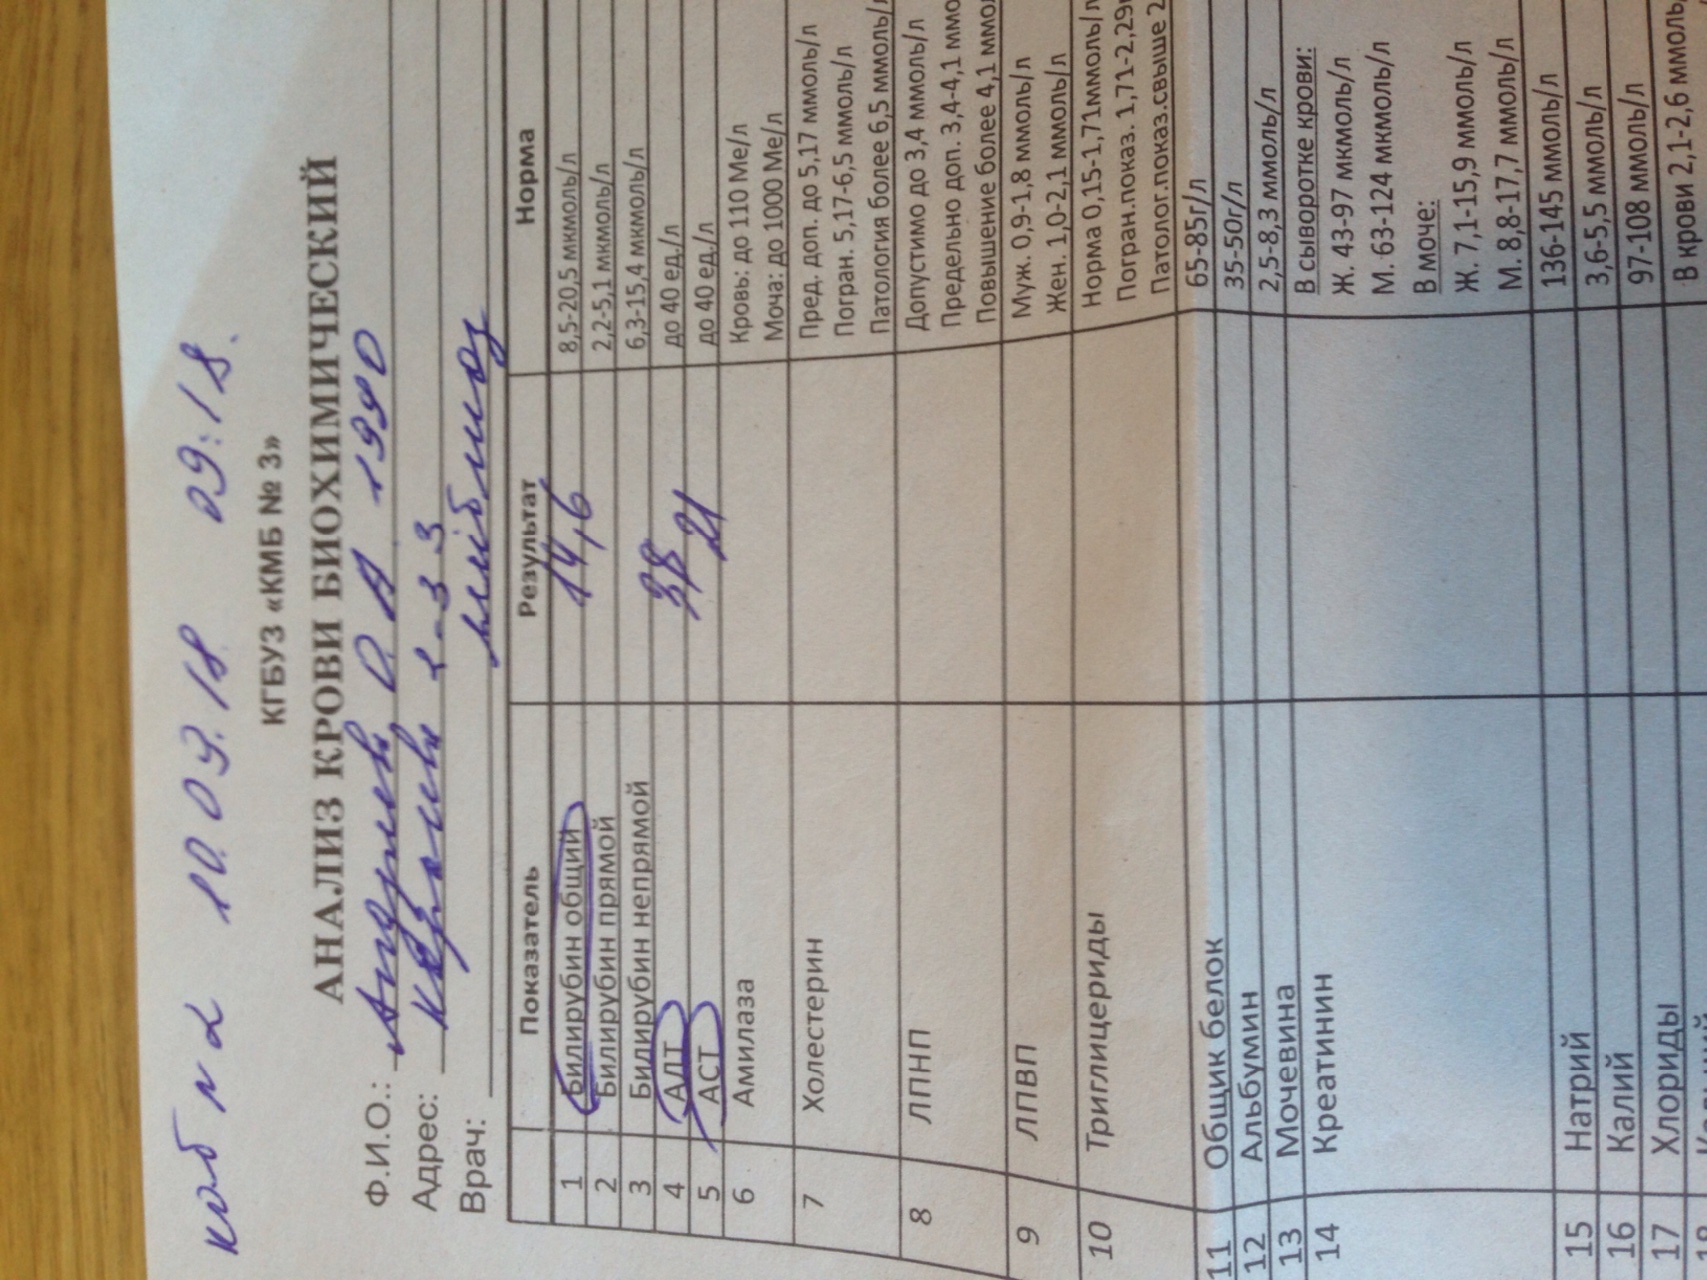 каб N 2 10.09.18 09:18.
КГБУЗ «КМБ № 3»
АНАЛИЗ КРОВИ БИОХИМИЧЕСКИЙ
Ф.И.О.: О. А 1990
Адрес: 2-33
Врач:
Показатель Результат Норма
1 Билирубин общий 14,6 8,5-20,5 мкмоль/л
2 Билирубин прямой 2,2-5,1 мкмоль/л
3 Билирубин непрямой 6,3-15,4 мкмоль/л
4 АЛТ 38 до 40 ед./л
5 АСТ 21 до 40 ед./л
6 Амилаза Кровь: до 110 Ме/л
Моча: до 1000 Ме/л
7 Холестерин Пред. доп. до 5,17 ммоль/л
Погран. 5,17-6,5 ммоль/л
Патология более 6,5 ммоль/л
8 ЛПНП Допустимо до 3,4 ммоль/л
Предельно доп. 3,4-4,1 ммо
Повышение более 4,1 ммо
9 ЛПВП Муж. 0,9-1,8 ммоль/л
Жен. 1,0-2,1 ммоль/л
10 Триглицериды Норма 0,15-1,71ммоль/л
Погран.показ. 1,71-2,29
Патолог.показ.свыше 2
11 Общик белок 65-85г/л
12 Альбумин 35-50г/л
13 Мочевина 2,5-8,3 ммоль/л
14 Креатинин В сыворотке крови:
Ж. 43-97 мкмоль/л
М. 63-124 мкмоль/л
В моче:
Ж. 7,1-15,9 ммоль/л
М. 8,8-17,7 ммоль/л
15 Натрий 136-145 ммоль/л
16 Калий 3,6-5,5 ммоль/л
17 Хлориды 97-108 ммоль/л
В крови 2,1-2,6 ммоль